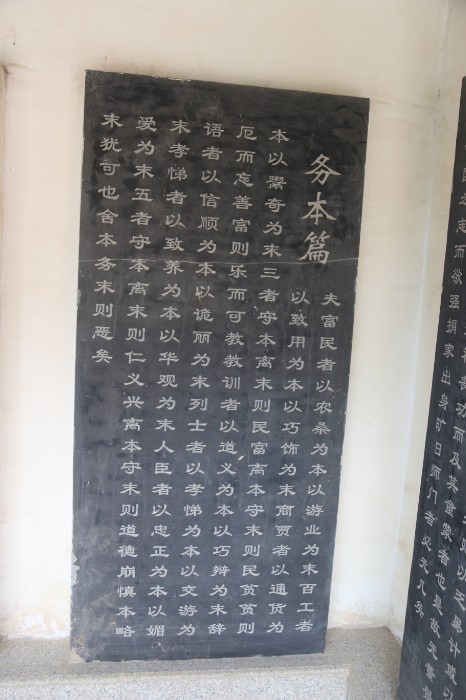 务本篇
夫富民者以农桑为本以游业为末百工者
以致用为本以巧饰为末商贾者以通货为
本以鬻奇为末三者守本离末则民富离本守末则民贫贫则
厄而忘善富则乐而可教教训者以道义为本以巧辩为末辞
语者以信顺为本以诡丽为末列士者以孝悌为本以交游为
末孝悌者以致养为本以华观为末人臣者以忠正为本以媚
爱为末五者守本离末则仁义兴离本守末则道德崩慎本略
末犹可也舍本务末则恶矣
则以乏易计或以
丧功而及其童蒙者也是故无董
之志而欲强捐家出身旷日师门者必无几矣